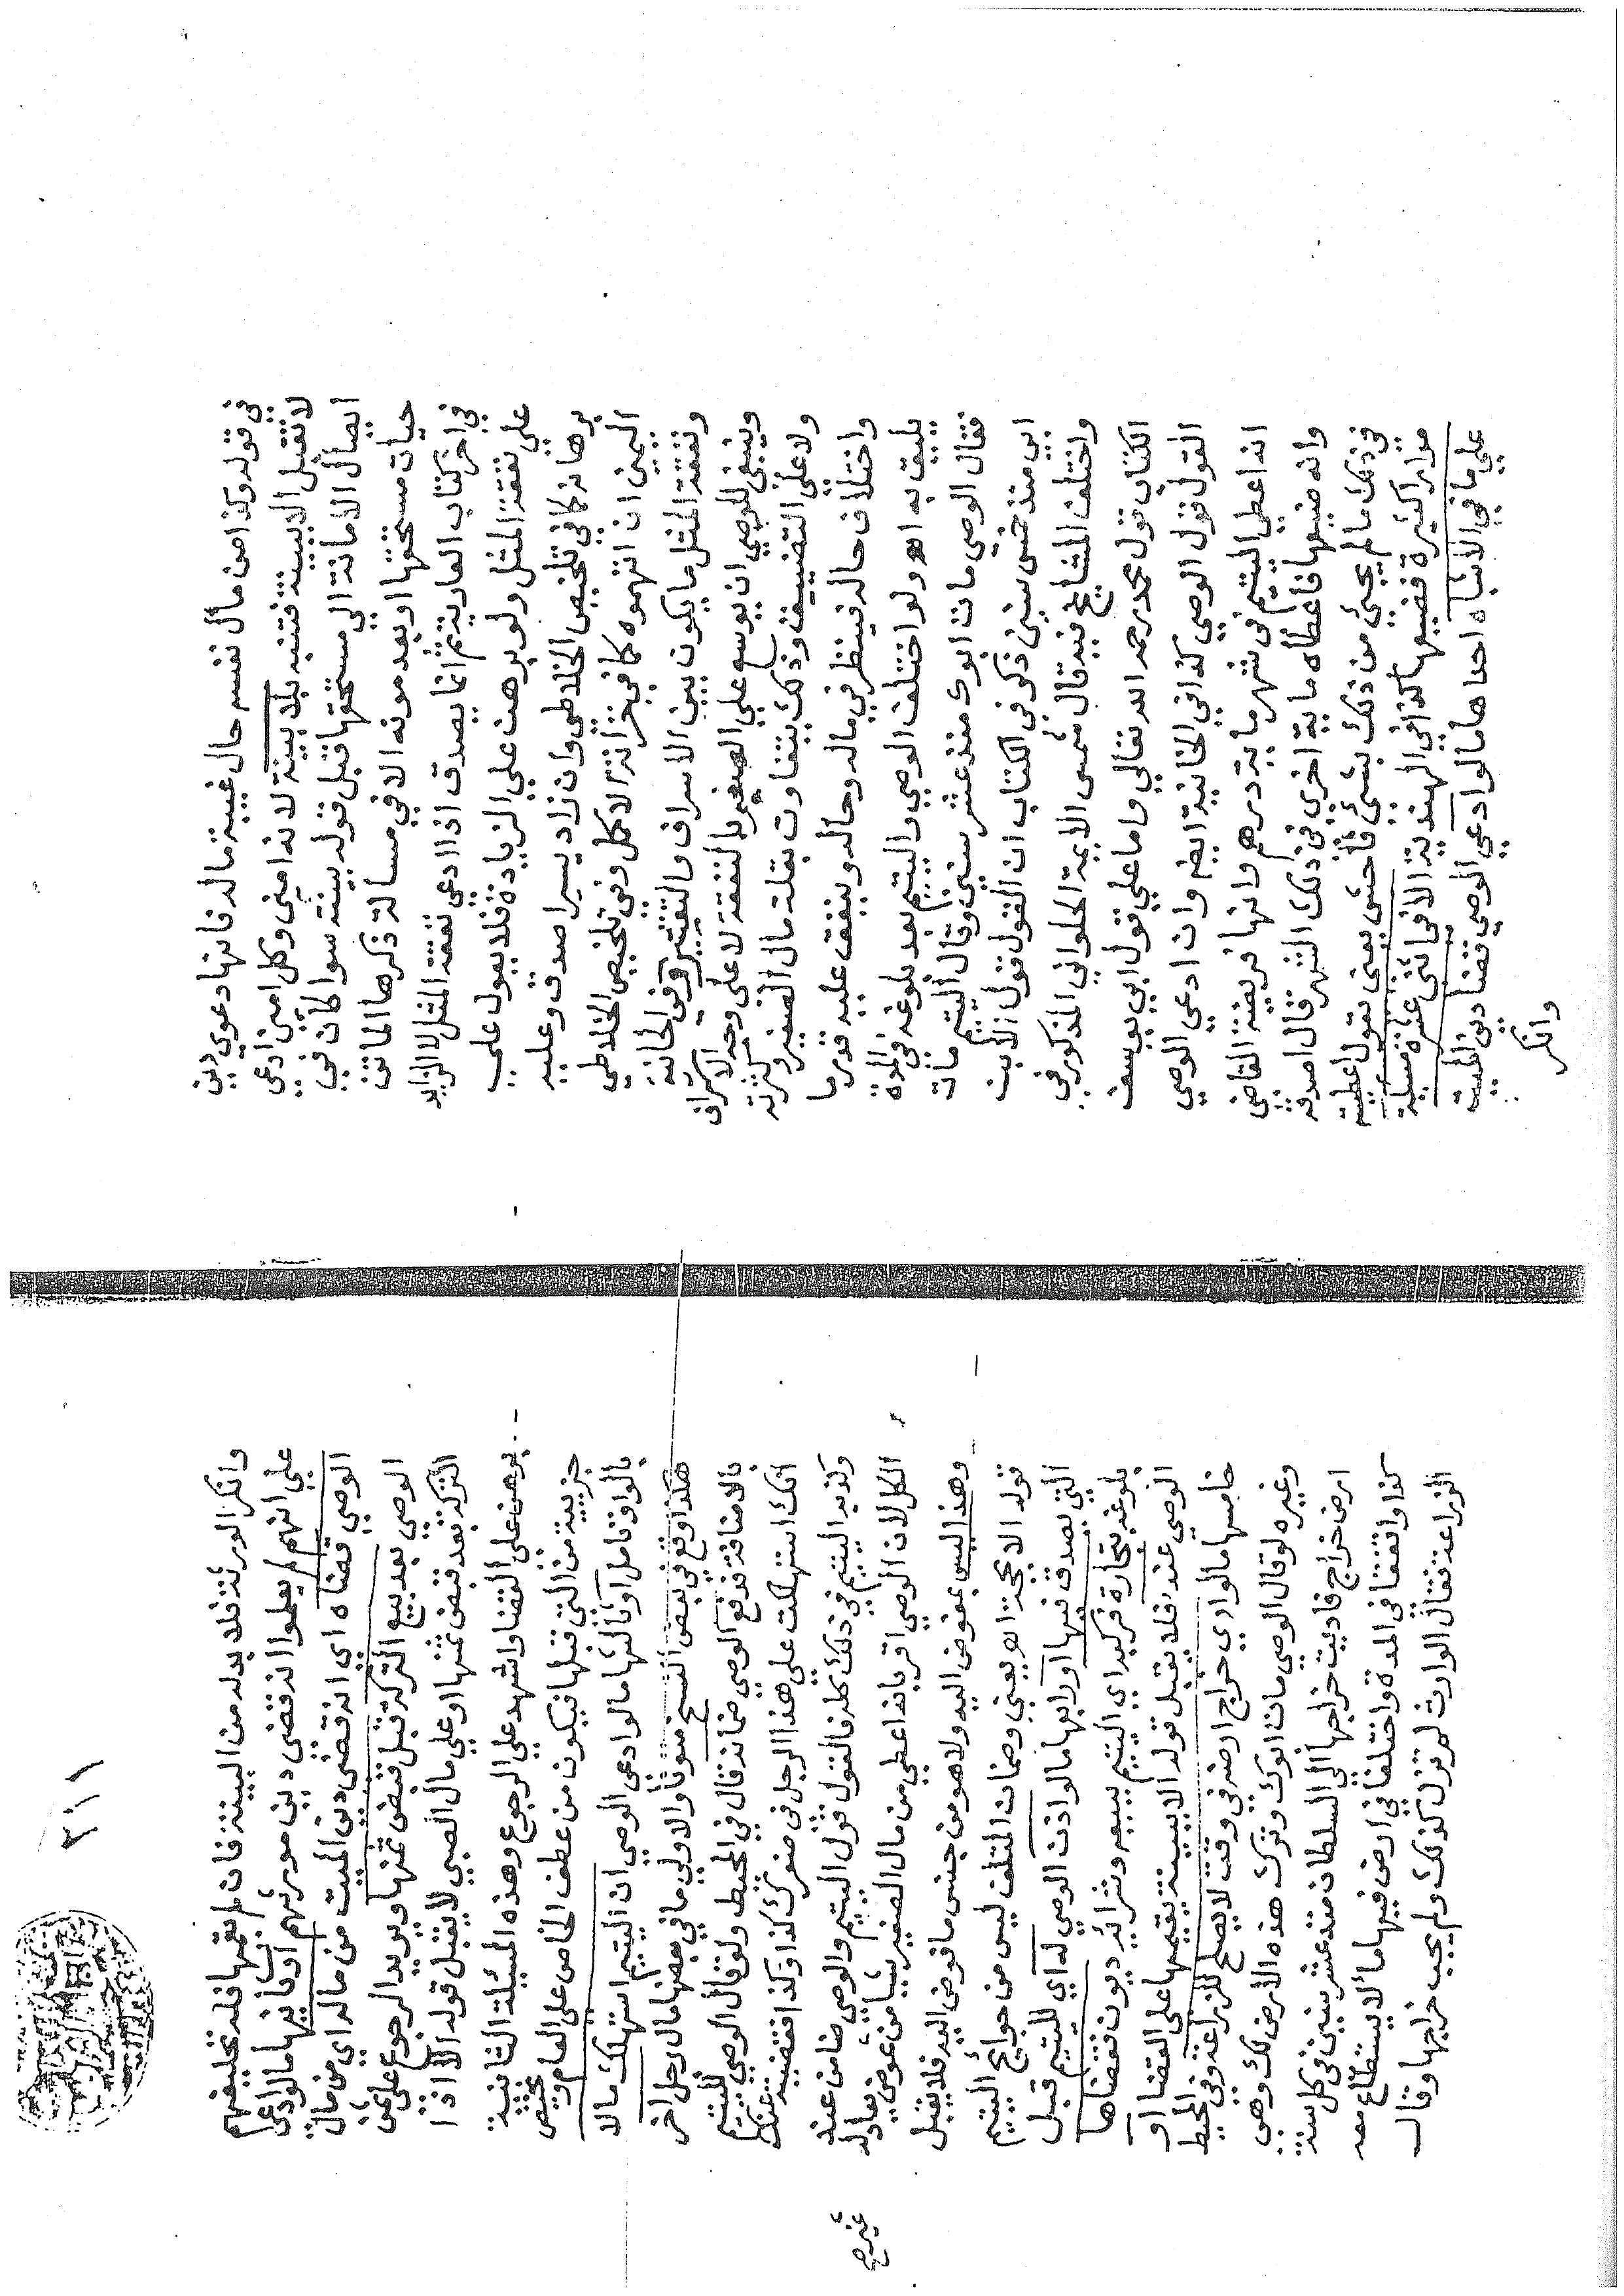 في قوله وكذا من مال نفسه حال غيبة ماله فانها دعوي دين
لا تقبل الا ببينة فتنبه بلا بينة لانه امين وكل امين ادعي
ايصال الامانة الي مستحقها قبل قوله بيينه سوا كان في
حيات مستحقها او بعد موته الا في مسالة ذكرها الماتن
في اخر كتاب العارية ثم انما يصدق اذا ادعي نفقة المثل لا الزايد
علي نفقة المثل ولو برهن علي الزيادة فلا يعول علي
برهانه كما في تلخيص الخلاطي وان زاد يسيرا صدق وعليه
اليمين ان اتهموه كما في خزانة الاكمل وفي تلخيص الخلاطي
ونفقة المثل ما يكون بين الاسراف والتقتير وفي الخانية
وينبغي للوصي ان يوسع علي الصغير بالنفقة لا علي وجه الاسراف
ولا علي التضييق وذلك يتفاوت بقلة مال الصغير وكثرته
واختلاف حاله فينظر في ماله وحاله وينفق عليه قدر ما
يليق به اه ولو اختلف الوصي واليتيم بعد بلوغه في المدة
فقال الوصي مات ابوك منذ عشر سنين وقال اليتيم مات
ابي منذ خمس سنين ذكر في الكتاب ان القول قول الابن
واختلف المشايخ فيه قال شمس الايمة الحلواني المذكور في
الكتاب قول محمد رحمه الله تعالي واما علي قول ابي يوسف
القول قول الوصي كذا في الخانية ايضا وان ادعي الوصي
انه اعطي اليتيم في شهر ماية درهم وانها فريضة القاضي
وانه ضيعها فاعطاه ماية اخري في ذلك الشهر قال اصدقه
في ذلك ما لم يجئ من ذلك بشئ فاحش يعني يقول اعطيته
مرارا كثيرة فضيعها كذا في الهندية الا في اثني عشرة مسيلة
علي ما في الاشباه احداها ما لو ادعي الوصي قضا دين الميت
وانكر
٣١١
وانكر الورثة فلا بد له من البينة فان لم يقمها فله تحليفهم
علي انهم لم يعلموا انه قضي دين مورثهم او ثانيها ما لو ادعي
الوصي قضاه اي انه قضي دين الميت من ماله اي من مال
الوصي بعد بيع التركة قبل قبض ثمنها ويريد الرجوع علي ثمن
التركة بعد قبض ثمنها او علي مال الصبي لا يقبل قوله الا اذا
برهن علي القضا واشهد علي الرجوع وهذه المسيلة الثانية
جزيية من التي قبلها فيكون من عطف الخاص علي العام ويختص
بالواو تامل او ثالثها ما لو ادعي الوصي ان اليتيم استهلك مالا
هكذا وقع في بعض النسخ منونا والاولي ما في بعضها مال رجل اخر
بالاضافة فدفع الوصي ضمانه قال في المحيط ولو قال الوصي لليتيم
انك استهلكت علي هذا الرجل في صغرك كذا وكذا فقضيته عنك
وكذبه اليتيم في ذلك كله فالقول قول اليتيم والوصي ضامن عند
الكل لان الوصي اقر بانه اعطي من مال الصغير شيا من عوض يعادله
وهذا ليس بمفوض اليه ولا هو من جنس ما فوض اليه فلا يقبل
قوله الا بحجة اه يعني وضمان المتلف ليس من حوايج اليتيم
التي يصدق فيها او رابعها ما لو اذن الوصي له اي لليتيم قبل
بلوغه بتجارة فركبه اي اليتيم ببيعه وشرائه ديون فقضاها
الوصي عنه فلا يقبل قوله الا ببينة يقيمها علي القضا او
خامسها ما لو ادي خراج ارضه في وقت لا يصلح للزراعة وفي المحيط
وغيره لو قال الوصي مات ابوك وترك هذه الارض لك وهي
ارض خراج فاديت خراجها الي السلطان منذ عشر سنين في كل سنة
كذا واتفقا في المدة واختلفا في ارض فيها ما لا يستطاع معه
الزراعة فقال الوارث لم تزل كذلك ولم يجب خراجها وقال